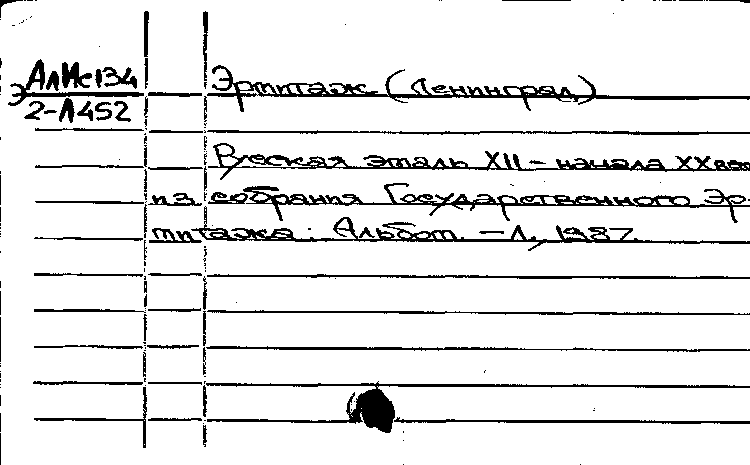 АлИс134
Э
2-Л452
Эрмитаж (Ленинград)
Русская эмаль XII – начала XX век
из собрания Государственного Эр-
митажа: Альбом. – Л., 1987.